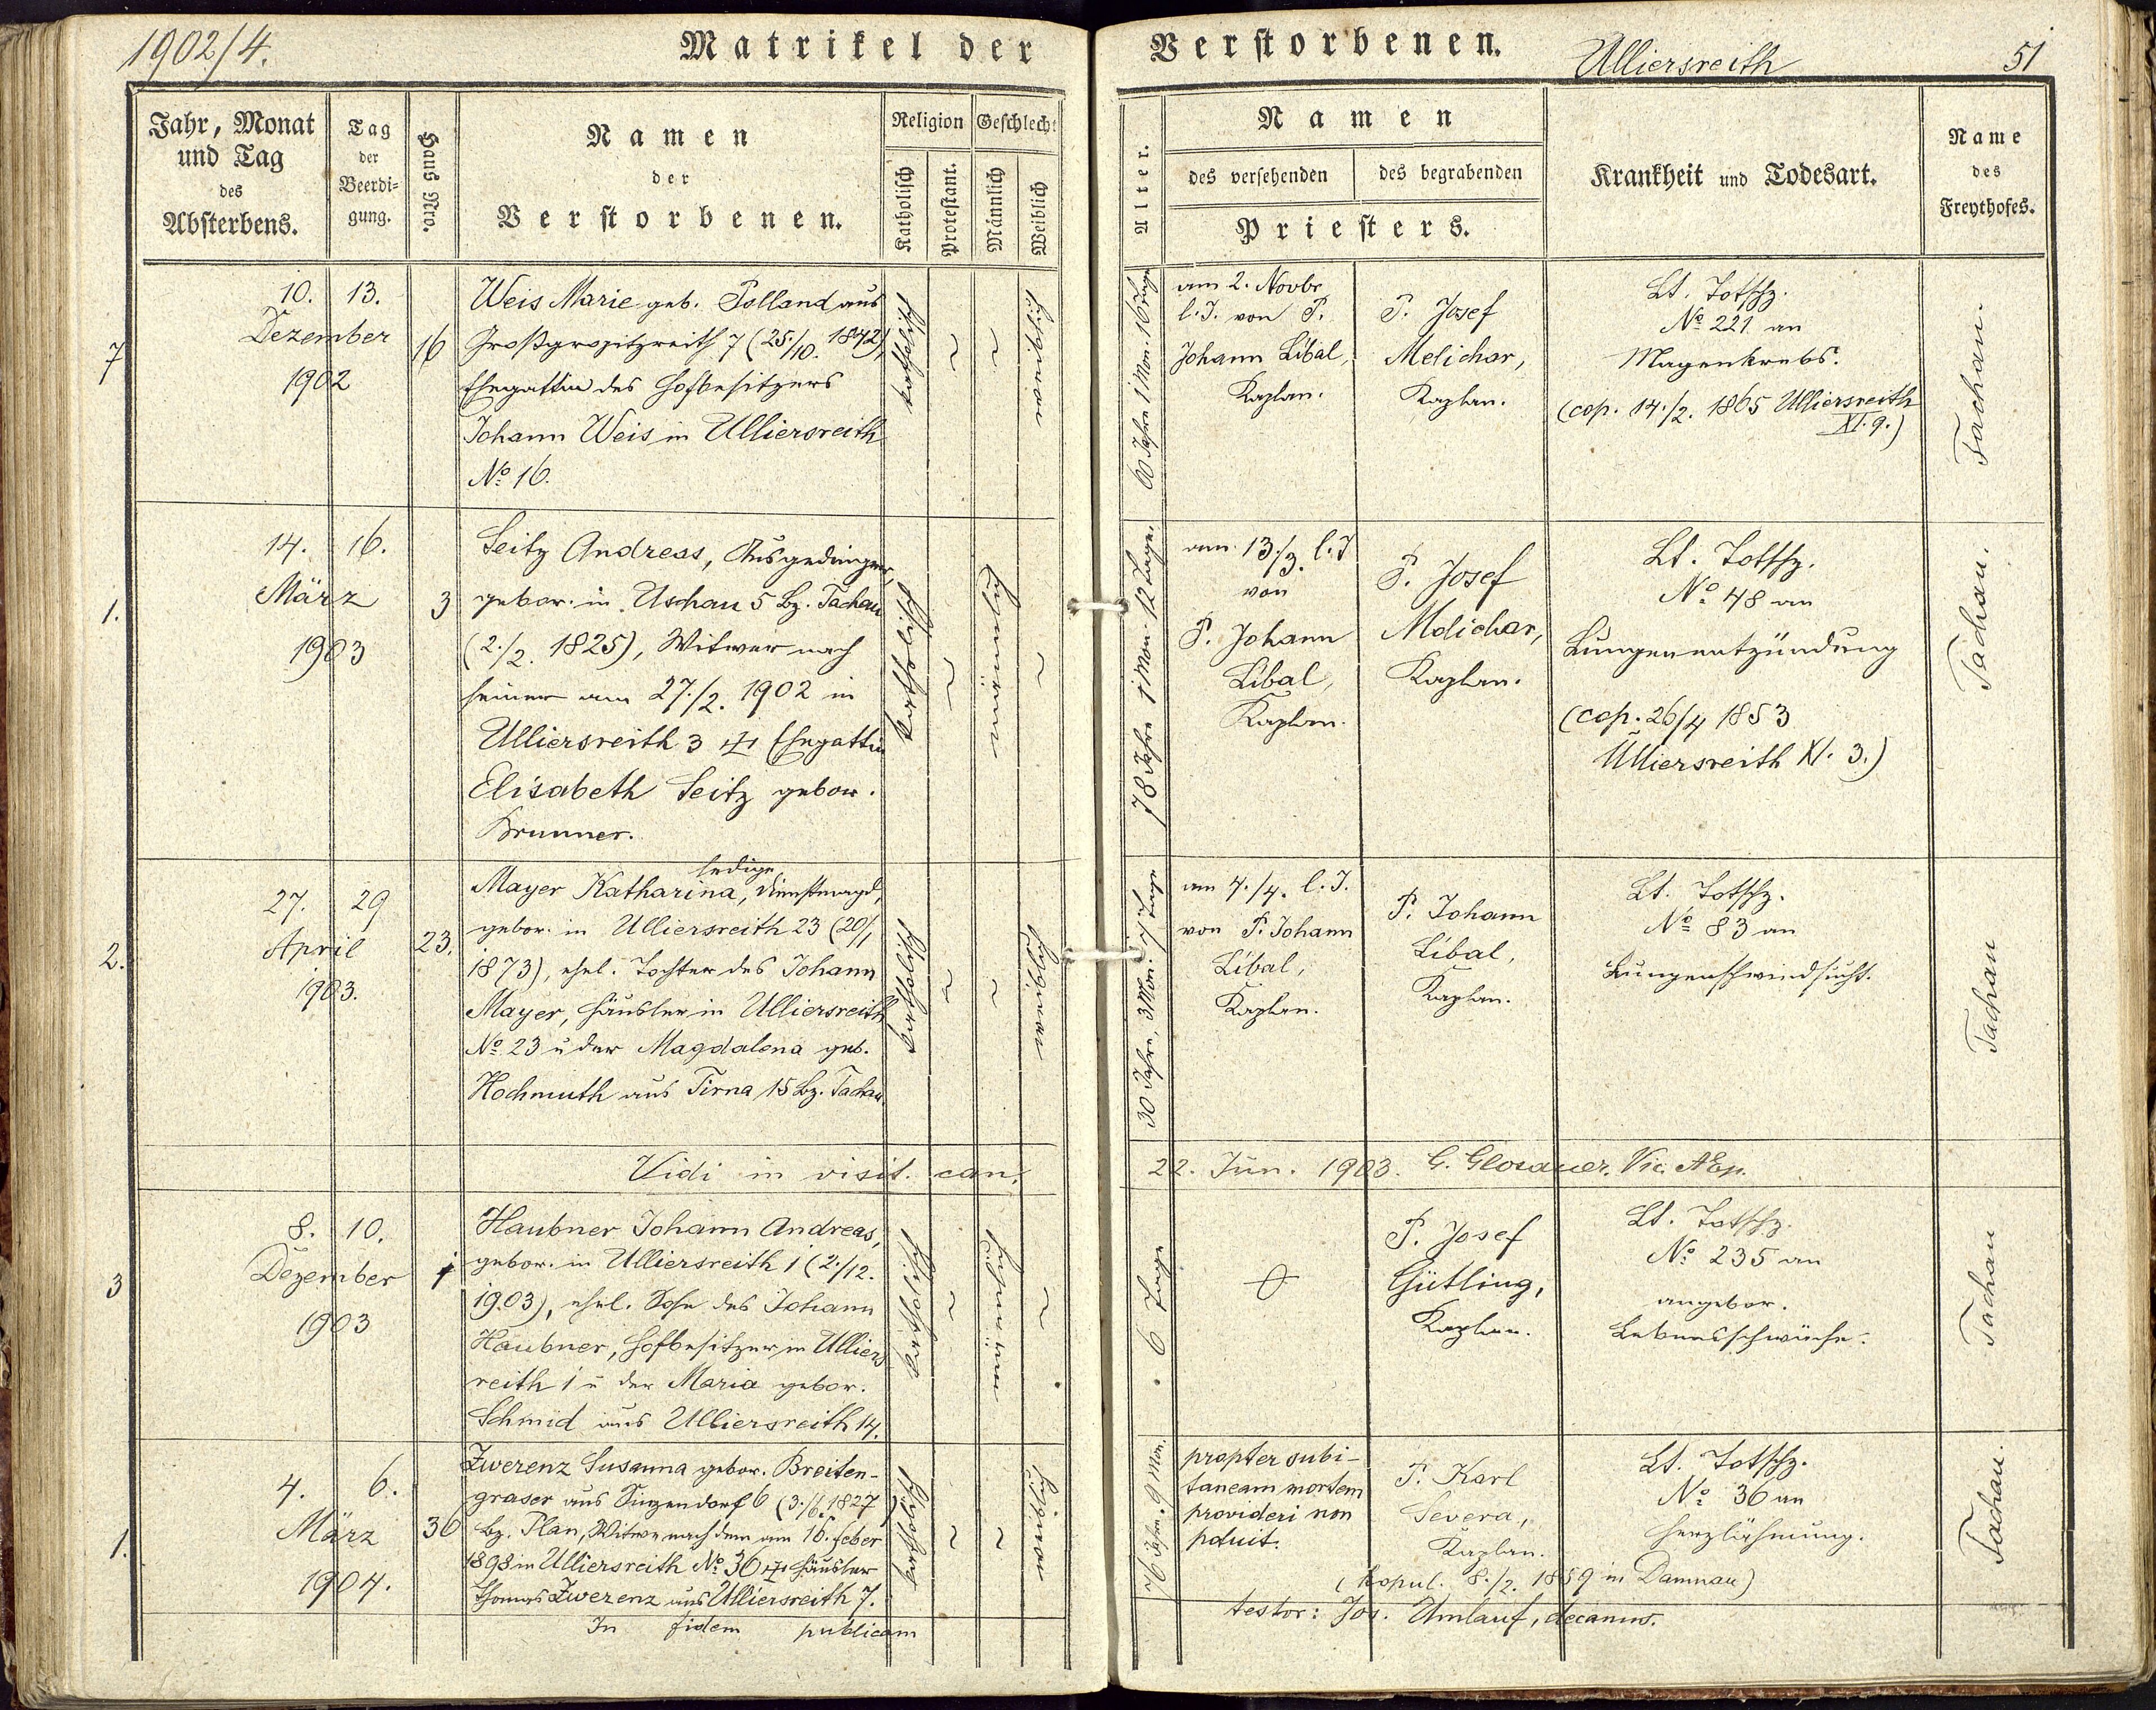 1902/4.
Matrikel der Verstorbenen.
Ulliersreith
51
Jahr, Monat und Tag des Absterbens.
Tag der Beerdi=gung.
Haus Nro.
Namen der Verstorbenen.
Religion
Katholisch
Protestant.
Geschlecht
Männlich
Weiblich
Alter.
Namen
des versehenden
des begrabenden
Priesters.
Krankheit und Todesart.
Name des Freythofes.
7
10.
13.
Dezember
1902
16
Weis Marie geb. Polland aus
Großgropitzreith 7 (25./10. 1842),
Ehegattin des Hofbesitzers
Johann Weis in Ulliersreith
No 16.
katholisch
~
~
weiblich
60 Jahre 1 Mon. 16 Tage
am 2. Novbr
l. J. von P.
Johann Líbal,
Kaplan.
P. Josef
Melichar,
Kaplan.
Lt. Totschz.
No 221 an
Magenkrebs.
(cop. 14./2. 1865 Ulliersreith
XI. 9.)
Tachau.
1.
14.
16.
März
1903
3
Seitz Andreas, Ausgedinger,
gebor. in Uschau 5 Bz. Tachau
(2./2. 1825), Witwer nach
seiner am 27./2. 1902 in
Ulliersreith 3 ✝ Ehegattin
Elisabeth Seitz gebor.
Brunner.
katholisch
~
männlich
~
78 Jahre 1 Mon. 12 Tage.
am 13./3. l. J
von
P. Johann
Líbal,
Kaplan.
P. Josef
Melichar,
Kaplan.
Lt. Totschz.
No 48 an
Lungenentzündung
(cop. 26/4 1853
Ulliersreith XI. 3.)
Tachau.
2.
27.
29
April
1903.
23.
ledige,
Mayer Katharina, Dienstmagd,
gebor. in Ulliersreith 23 (20/1
1873), ehel. Tochter des Johann
Mayer, Häusler in Ulliersreith
No 23 u der Magdalena geb.
Hochmuth aus Tirna 15 Bz. Tachau.
katholisch
~
~
weiblich
30 Jahre, 3 Mon. 7 Tage
am 4./4. l. J.
von P. Johann
Líbal,
Kaplan.
P. Johann
Líbal,
Kaplan.
Lt. Totschz.
No 83 an
Lungenschwindsucht.
Tachau
Vidi in visit. can. 22. Jun. 1903. G. Glosauer, Vic. AEp.
3
8.
10.
Dezember
1903
1
Haubner Johann Andreas,
gebor. in Ulliersreith 1 (2./12.
1903), ehel. Sohn des Johann
Haubner, Hofbesitzer in Ulliers
reith 1 u der Maria gebor.
Schmid aus Ulliersreith 14.
katholisch
~
männlich
~
6 Tage
P. Josef
Gütling,
Kaplan.
Lt. Totschz.
No 235 an
angebor.
Lebensschwäche.
Tachau
1.
4.
6.
März
1904.
36
Zwerenz Susanna gebor. Breiten-
graser aus Sinzendorf 6 (3./6. 1827)
Bz. Plan, Witwe nach dem am 16. Feber
1898 in Ulliersreith No 36 ✝ Häusler
Thomas Zwerenz aus Ulliersreith 7.
katholisch
~
~
weiblich
76 Jahre. 9 Mon.
propter subi-
taneam mortem
provideri non
potuit.
P. Karl
Severa,
Kaplan.
Lt. Totschz.
No 36 an
Herzlähmung.
(Kopul. 8./2. 1859 in Damnau)
Tachau.
In fidem publicam testor: Jos. Umlauf, decanus.